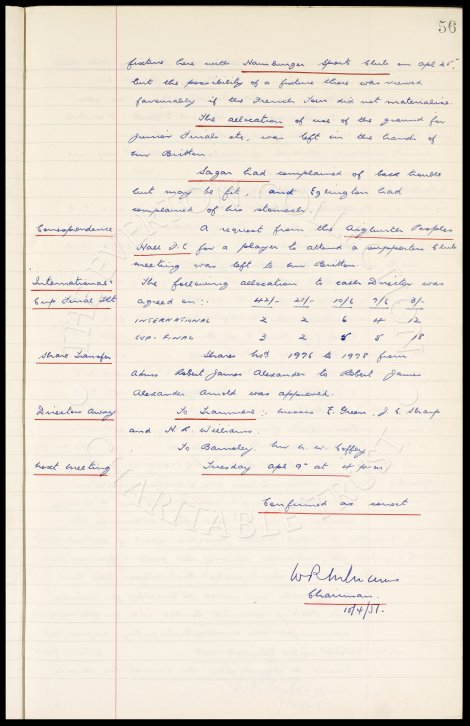 56
fixture here with Hamburger Sport Club on Apl 25th
but the possibility of a fixture there was viewed
favourably if the French Tour did not materialise.
The allocation of use of the ground for
Junior Finals etc, was left in the hands of
Mr Britton.
Sagar had complained of back trouble
but may be fit, and Eglington had
complained of his stomach.
Correspondence A request from the Aigburth Peoples
Hall F.C for a player to attend a supporters Club
meeting was left to Mr Britton.
International & The following allocation to each Director was
Cup Final Tkt agreed on :- 42/- 21/- 10/6 7/6 3/-
INTERNATIONAL 2 2 6 4 12
CUP. FINAL 3 2 5 5 18
Share Transfer Shares Nos 1976 to 1978 from
Robert James Alexander to Robert James
Alexander Arnold was approved.
Directors Away To Tranmere :- Messrs E. Green, J. C. Sharp
and H. R. Williams.
To Barnsley Mr C. W. Coffey
Next Meeting Tuesday Apl 9th at 4 p.m.
Confirmed as correct
Chairman.
10/4/51.
THE EVERTON COLLECTION
CHARITABLE TRUST